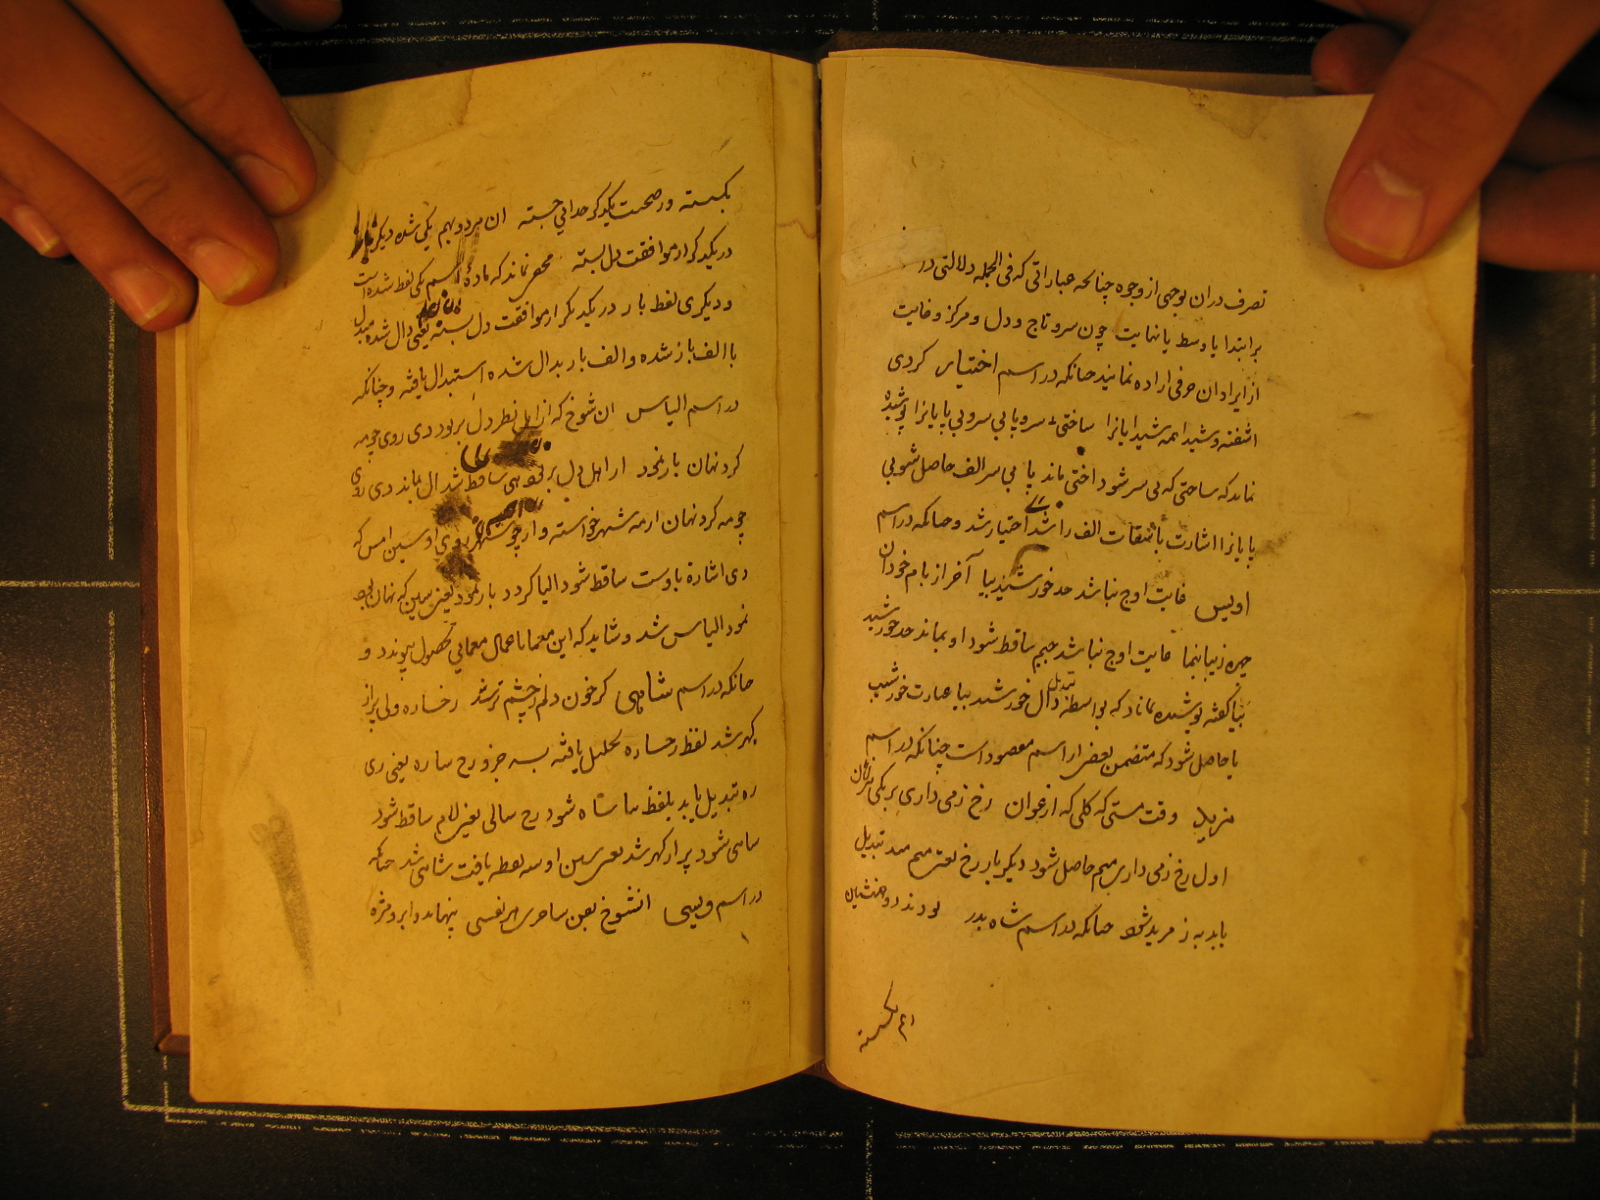 تصرف در ان بوجهی از وجوه چنانچه عباراتی که فی الجمله دلالتی در
بر ابتدا یا وسط یا نهایت چون سر و تاج و دل و مرکز و غایت
از ایراد ان حرفی اراده نمایند چنانکه در اسم اختیار کردی
اشفته و شیدا همه شیدایانرا ساختی سر و پا بی سر و بی پایانرا پوشیده
نماند که ساختی که بی سر شود اختی ماند یا بی سر الف حاصل شود بی
پایانرا اشارت باسقاط الف را شد اختیار شد و چنانکه در اسم
اویس غایت اوج نباشد حد خورشید بیا آخر از بام خود ان
چهره زیبا بنما غایت اوج نباشد جیم ساقط شود او بماند حد خورشید
بیا گفته پوشیده نماند که بواسطه تبدیل دال خورشید بیا عبارت خورشیب
یا حاصل شود که متضمن بعضی از اسم مقصود است چنانکه در اسم
مزید وقت مستی که کلی که ارغوان رخ زمی داری بر یکی
اول رخ زمی داری میم حاصل شود دیگر بار رخ یعنی میم مید تبدیل
یابد به ز مزید شود چنانکه در اسم شاه بدر بودند دو همنشین
بکسسته
بکسسته و ز صحبت یکدگر جدایی جسته ان هر دو بهم یکی شده دیگر بار
در یکدگر از موافقت دل بسته مخفی نماند که ماده اسم یکی لفظ شده است
و دیگری لفظ بار در یکدیگر از موافقت دل بسته یعنی دال شده مبدل
با الف باز شده و الف بار بدال شده استبدال یافته و چنانکه
در اسم الیاس ان شوخ که از اهل نظر دل بربود دی روی چو مه
کرد نهان باز نمود از اهل دل بربود هی ساقط شد ال بماند دی روی
چو مه کرد نهان از مه شهر خواسته و از چو شهر روی او سین امس که
دی اشاره باوست ساقط شود الیا کردد باز نمود یعنی سین که نهان بود
نمود الیاس شد و شاید که این معما باعمال معمایی حصول پیوندد و
چنانکه در اسم شاهی کر خون دلم ز چشم تر شد رخساره ولی پر از
کهر شد لفظ رخساره تحلیل یافته بسه جزو رخ سا ره یعنی ری
ره تبدیل یابد بلفظ سا ساه شود رخ سالی یعنی لام ساقط شود
ساهی شود پر از کهر شد یعنی سین او سه نقطه یافت شاهی شد چنانکه
در اسم ویسی انشوخ بفن ساحری هر نفسی پنهاند و ابرو مژه